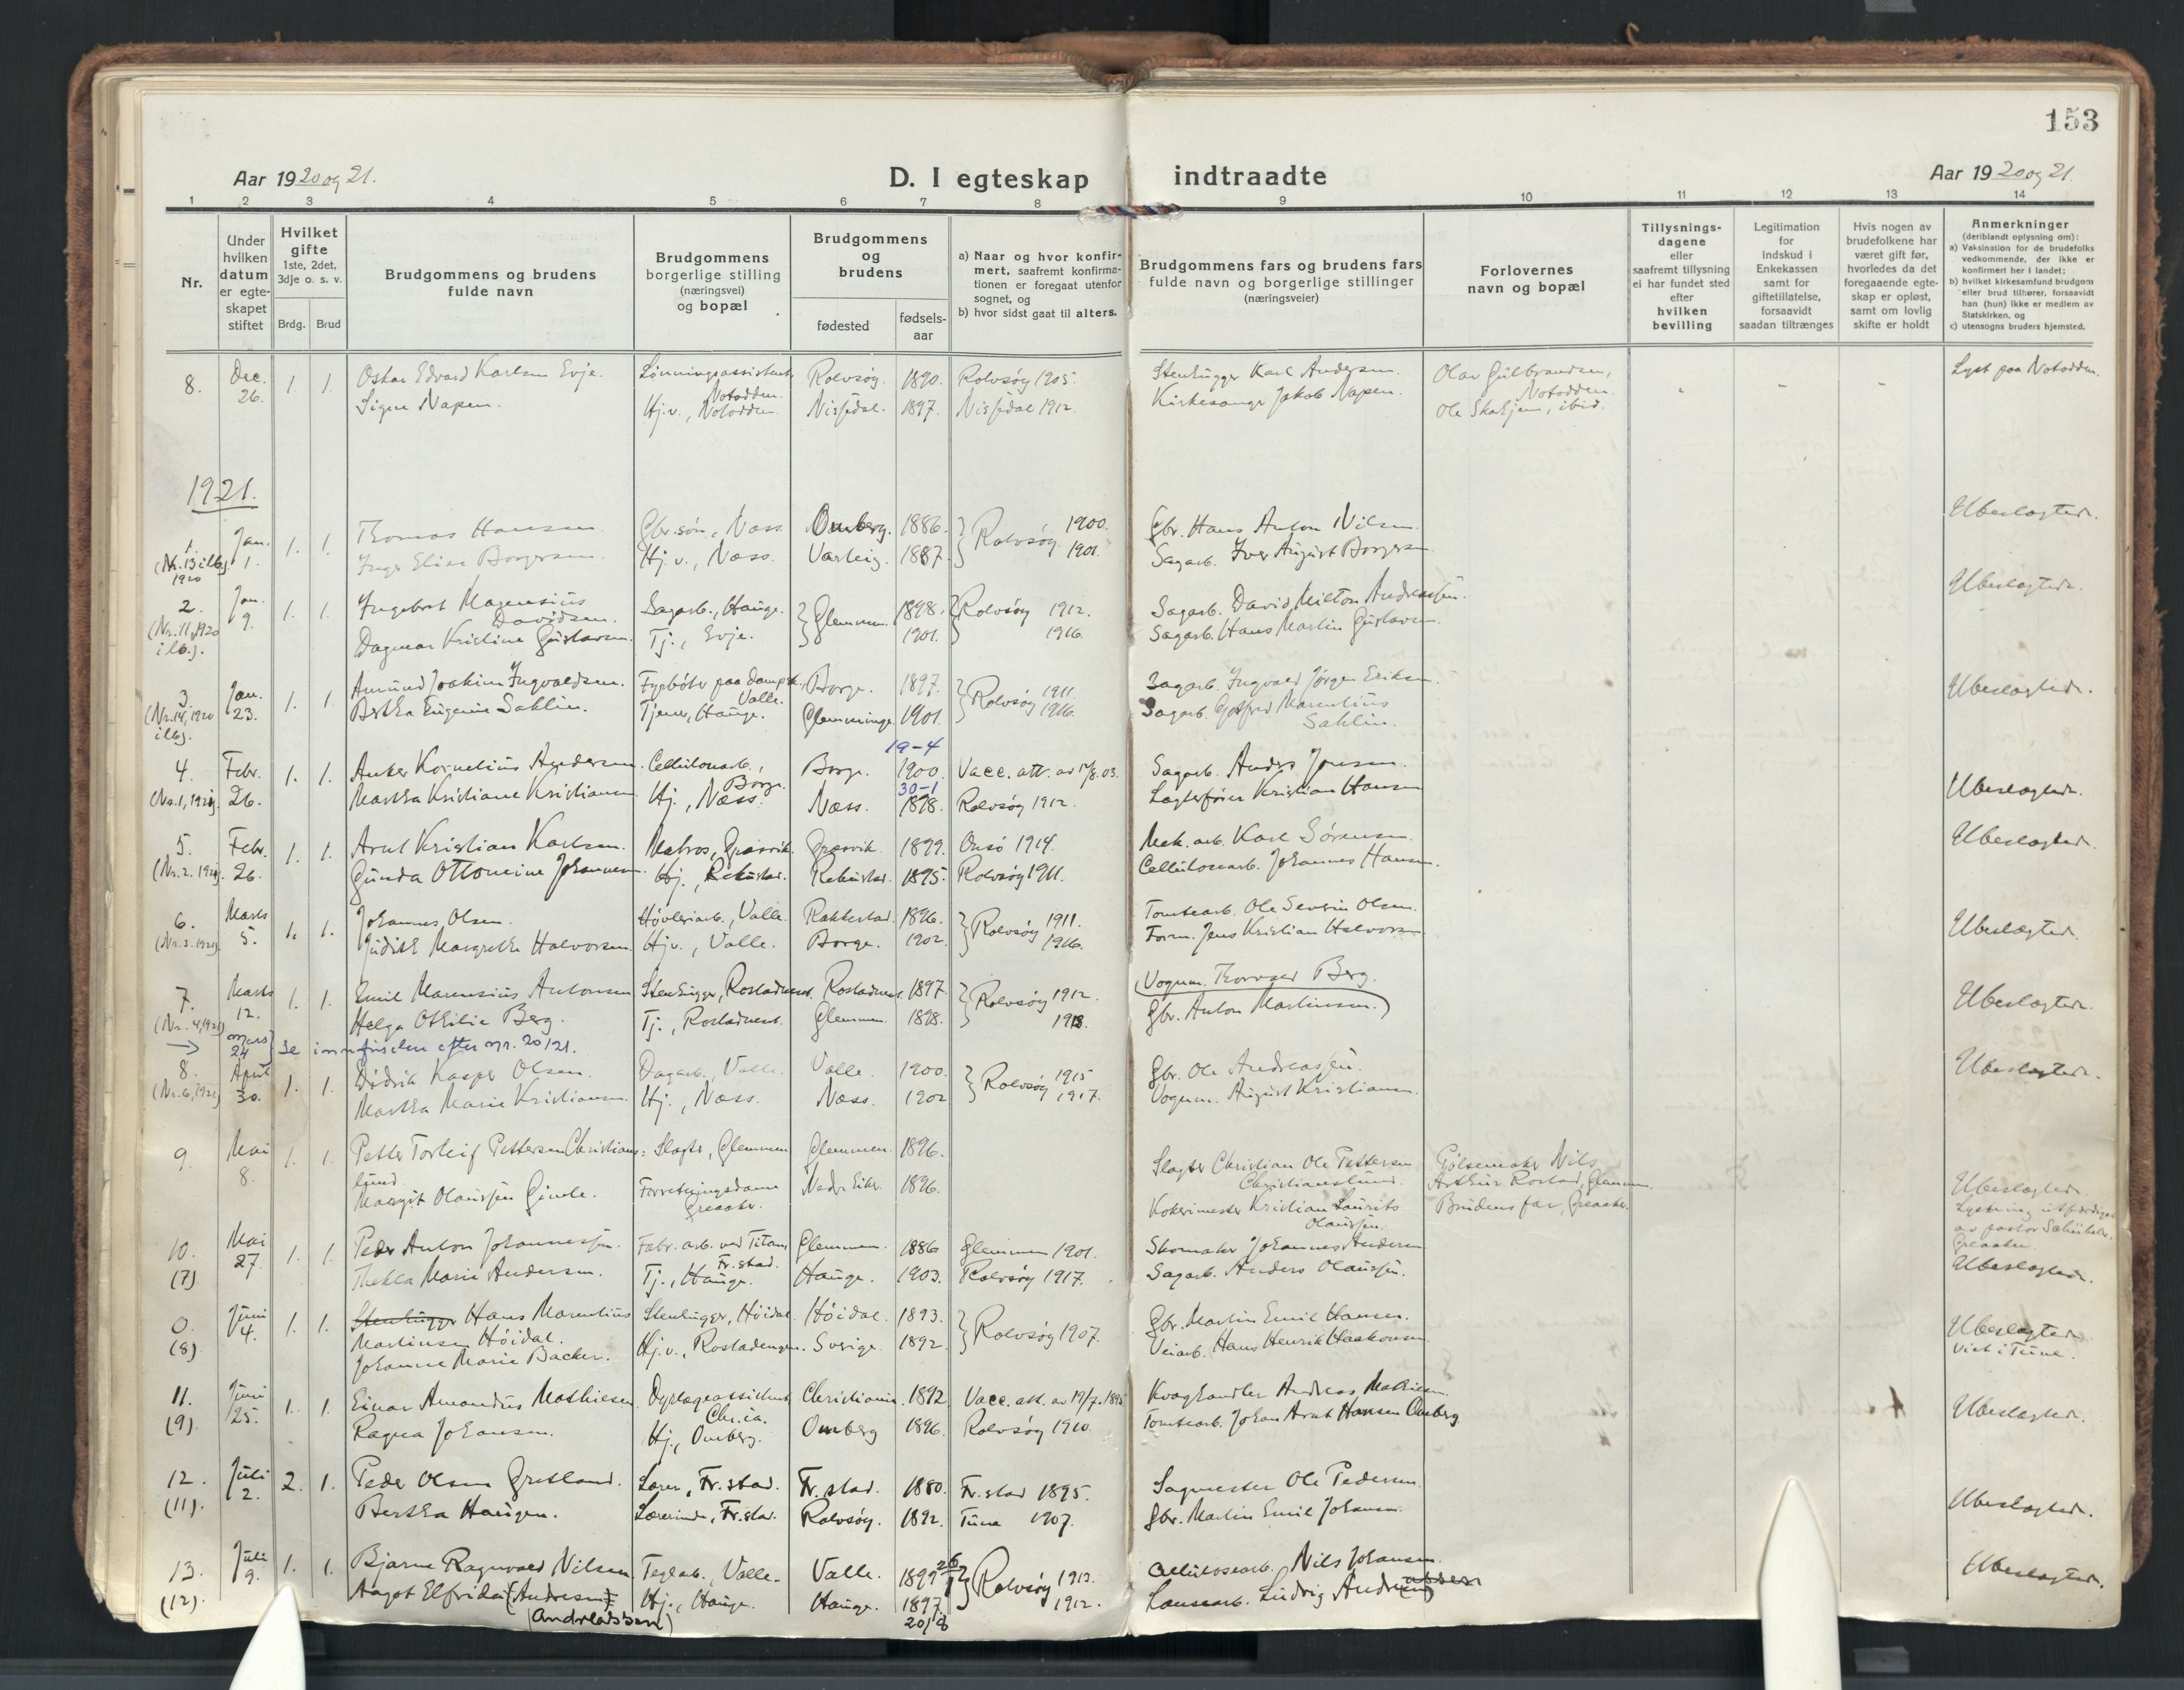 153
Aar 1920 og 21.
D. I egteskap indtraadte
Aar 1920 og 21
1 2 3 4 5 6 7 8 9 10 11 12 13 14
Nr.
Under hvilken datum er egte-skapet stiftet
Hvilket gifte
1ste, 2det, 3dje o. s. v.
Brdg. Brud
Brudgommens og brudens fulde navn
Brudgommens borgerlige stilling (næringsvei) og bopæl
Brudgommens og brudens
fødested
fødsels-aar
a) Naar og hvor konfir-mert, saafremt konfirma-tionen er foregaat utenfor sognet, og
b) hvor sidst gaat til alters.
Brudgommens fars og brudens fars fulde navn og borgerlige stillinger (næringsveier)
Forlovernes navn og bopæl
Tillysnings-dagene eller saafremt tillysning ei har fundet sted efter hvilken bevilling
Legitimation for indskud i Enkekassen samt for giftetillatelse, forsaavidt saadan tiltrænges
Hvis nogen av brudefolkene har været gift før, hvorledes da det foregaaende egte-skap er opløst, samt om lovlig skifte er holdt
Anmerkninger
(deriblandt oplysning om):
a) Vaksination for de brudefolks vedkommende, der ikke er konfirmert her i landet;
b) hvilket kirkesamfund brudgom eller brud tilhører, forsaavidt han (hun) ikke er medlem av Statskirken, og
c) utensogns bruders hjemsted.
8. Dec. 26. 1. 1. Oskar Edvard Karlsen Evje. Lønningsassistent, Notodden. Rolvsøy. 1890. Rolvsøy 1905. Stenhugger Karl Andersen. Olav Gulbrandsen, Notodden. Lyst paa Notodden.
Signe Napen. Hj.v., Notodden. Nissedal. 1897. Nissedal 1912. Kirkesanger Jakob Napen. Ole Skahjem, ibid.
1921.
1. (Nr. 13 ilb. 1920) Jan. 1. 1. 1. Thomas Hansen. Gbr.søn, Næss. Omberg. 1886. Rolvsøy 1900. Gbr. Hans Anton Nilsen. Ubeslægtede.
Inga Elise Borgersen. Hj.v., Næss. Varteig. 1887. 1901. Sagarb. Iver August Borgersen.
2. (Nr. 11, 1920 ilb.). Jan. 9. 1. 1. Ingebret Magensius Davidsen. Sagarb., Hauge. Glemmen. 1898. Rolvsøy 1912. Sagarb. David Milton Andreassen. Ubeslægtede.
Dagmar Kristine Gustavsen. Tj., Evje. 1901. 1916. Sagarb. Hans Martin Gustavsen.
3. (Nr. 14, 1920 ilb). Jan. 23. 1. 1. Amund Joakim Ingvaldsen. Fyrbøter paa dampsk., Valle. Borge. 1897. Rolvsøy 1911. Sagarb. Ingvald Jørgen Eriksen. Ubeslægtede.
Bertha Eugenie Sahlin. Tjener, Hauge. Glemminge 1901. 1916. Sagarb. Gotfred Marentius Sahlin.
4. (No. 1, 1921). Febr. 26. 1. 1. Anker Kornelius Andersen. Cellulosearb., Borge. Borge. 19-4 1900. Vacc. att. av 17/8. 03. Sagarb. Anders Jensen. Ubeslægtede.
Martha Kristiane Kristiansen. Hj., Næss. Næss. 30-1 1898. Rolvsøy 1912. Lagterfører Kristian Hansen
5. (Nr. 2. 1921). Febr. 26. 1. 1. Arnt Kristian Karlsen. Matros, Græsvik. Græsvik. 1899. Onsø 1914. Mek. arb. Karl Sørensen. Ubeslægtede.
Gunda Ottomine Johannesen. Hj., Rekustad. Rekustad. 1895. Rolvsøy 1911. Cellulosearb. Johannes Hansen.
6. (Nr. 3. 1921). Marts 5. 1. 1. Johannes Olsen. Høvleriarb., Valle. Rakkestad. 1896. Rolvsøy 1911. Tomtearb. Ole Severin Olsen. Ubeslægtede.
Judith Margrethe Halvorsen. Hj.v., Valle. Borge. 1902. 1916. Form. Jens Kristian Halvorsen
7. (Nr. 4, 1921) Marts 12. 1. 1. Emil Marensius Antonsen Stenhugger, Rostadneset. Rostadneset. 1897. Rolvsøy 1912. (Vognm. Thorvald Berg. Ubeslægtede.
Helga Othilie Berg. Tj., Rostadneset. Glemmen. 1898. 1913. Gbr. Anton Martinsen.)
→ Mars 24 } Se innførselen efter nr. 20/21.
8. (Nr. 6, 1921) April 30. 1. 1. Didrik Kasper Olsen. Dagarb., Valle. Valle. 1900. Rolvsøy 1915 Gbr. Ole Andreassen. Ubeslægtede.
Martha Marie Kristiansen. Hj., Næss. Næss. 1902 1917. Vognm. August Kristiansen.
9. Mai 8. 1. 1. Petter Torleif Pettersen Christians- Slagter, Glemmen Glemmen. 1896. Slagter Christian Ole Pettersen Christianslund. Pølsemaker Nils Arthur Rostad, Glemmen.
lund.
Margit Olaussen Gimle. Forretningsdame Greaaker. Nedre Eiker. 1896. Kokerimester Kristian Laurits Olaussen. Brudens far, Greaaker. Ubeslægtede. Lysning utfærdiget av pastor Greaaker.
10. (7) Mai 27. 1. 1. Peder Anton Johannessen. Fabr. arb. ved Titan, Fr.stad. Glemmen. 1886 Glemmen 1901. Skomaker Johannes Andersen Ubeslægtede.
Thekla Marie Andersen. Tj., Hauge. Hauge. 1903. Rolvsøy 1917. Sagarb. Anders Olaussen.
0. (8) Juni 4. 1. 1. Stenhugger Hans Marentius Stenhugger, Høidal. Høidal. 1893. Rolvsøy 1907. Gbr. Martin Emil Hansen. Ubeslægtede
Martinsen Høidal. Viet i Tune.
Johanne Marie Backer. Hj.v., Rostadengen. Sverige. 1892. Veiarb. Hans Henrik Haakonsen.
11. (9) Juni 25. 1. 1. Einar Amandus Mathiesen. Dyrlægeassistent, Chr.ia. Christiania. 1892 Vacc. att. av 19/7. 1895 Kvæghandler Andreas Mathiesen. Ubeslægtede.
Ragna Johansen. Hj., Omberg. Omberg 1896. Rolvsøy 1910. Tomtearb. Johan Arnt Hansen Omberg
12. (11). Juli 2. 2. 1. Peder Olsen Gretland. Lærer, Fr.stad. Fr.stad. 1880. Fr.stad 1895. Sagmester Ole Pedersen. Ubeslægtede.
Bertha Haugen. Lærerinde, Fr.stad. Rolvsøy. 1892. Tune 1907. Gbr. Martin Emil Johansen.
13. (12). Juli 9. 1. 1. Bjarne Ragnvald Nilsen Teglarb., Valle. Valle. 1899 26/1 Rolvsøy 1913. Cellulosearb. Nils Johansen. Ubeslægtede.
Aagot Elfrida (Andresen) Hj., Hauge. Hauge. 1897. 20/8 1912. Lænsearb. Ludvig Andresen
(Andreassen)